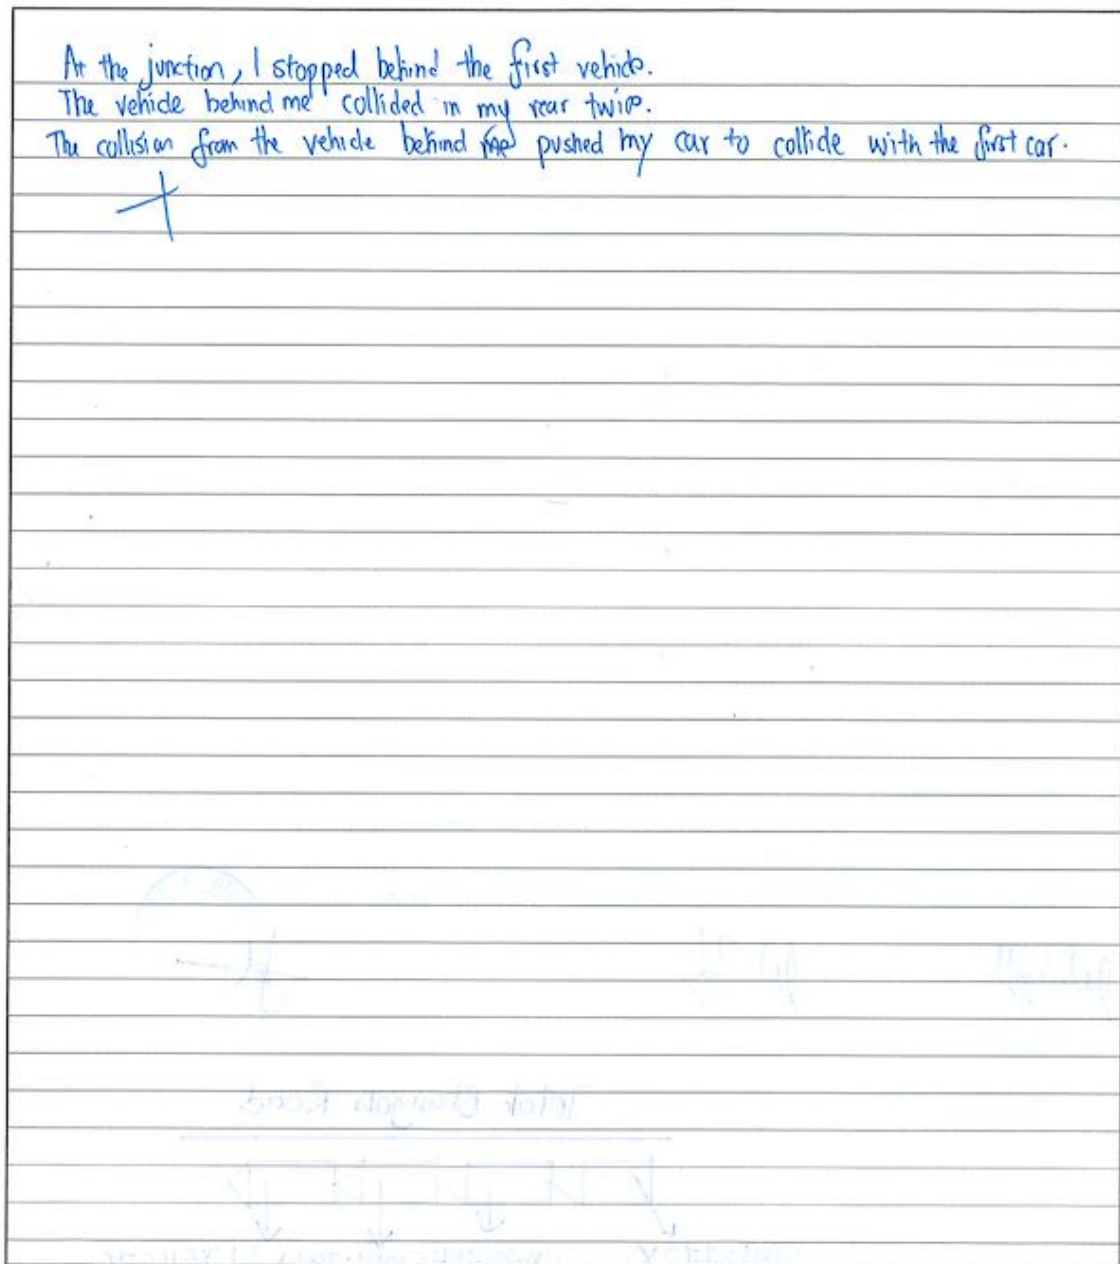 At the junction, I stopped behind the first vehicle.
The vehicle behind me collided in my rear twice.
The collision from the vehicle behind me pushed my car to collide with the first car.